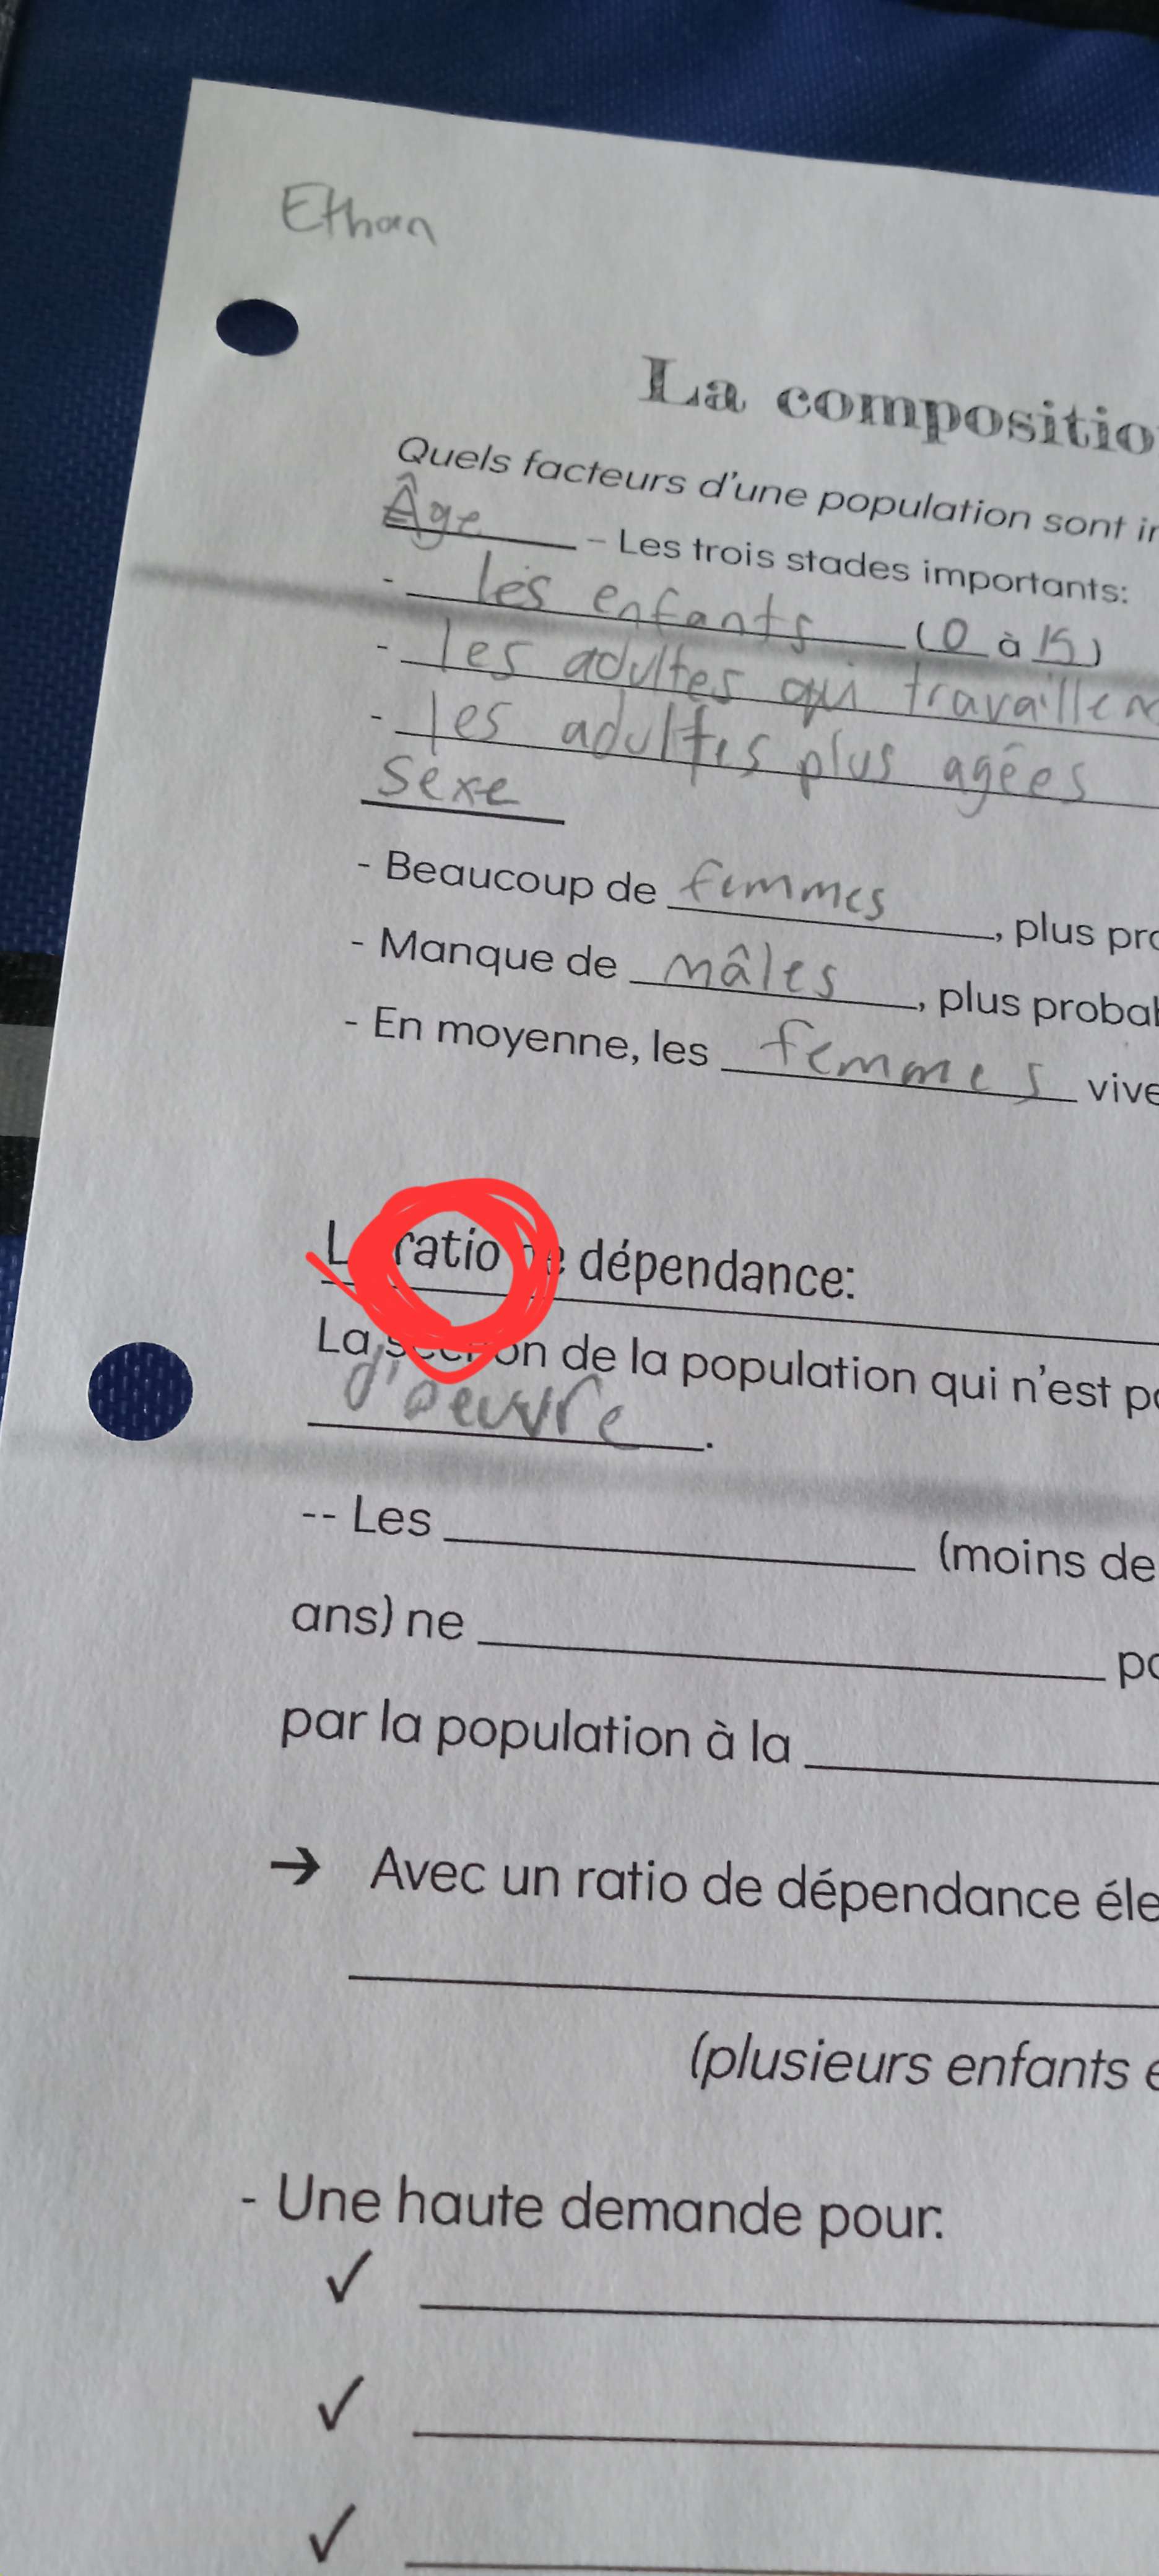 Ethan
La compositio
Quels facteurs d'une population sont
Âge – Les trois stades importants:
- les enfants (0 à 15)
- les adultes qui travaillen
- les adultes plus agées
Sexe
- Beaucoup de femmes, plus pro
- Manque de mâles, plus probal
- En moyenne, les femmes vive
ratio dépendance:
La section de la population qui n'est pa
d'oeuvre.
-- Les (moins de
ans) ne
par la population à la
→ Avec un ratio de dépendance éle
(plusieurs enfants e
- Une haute demande pour:
✓
✓
✓